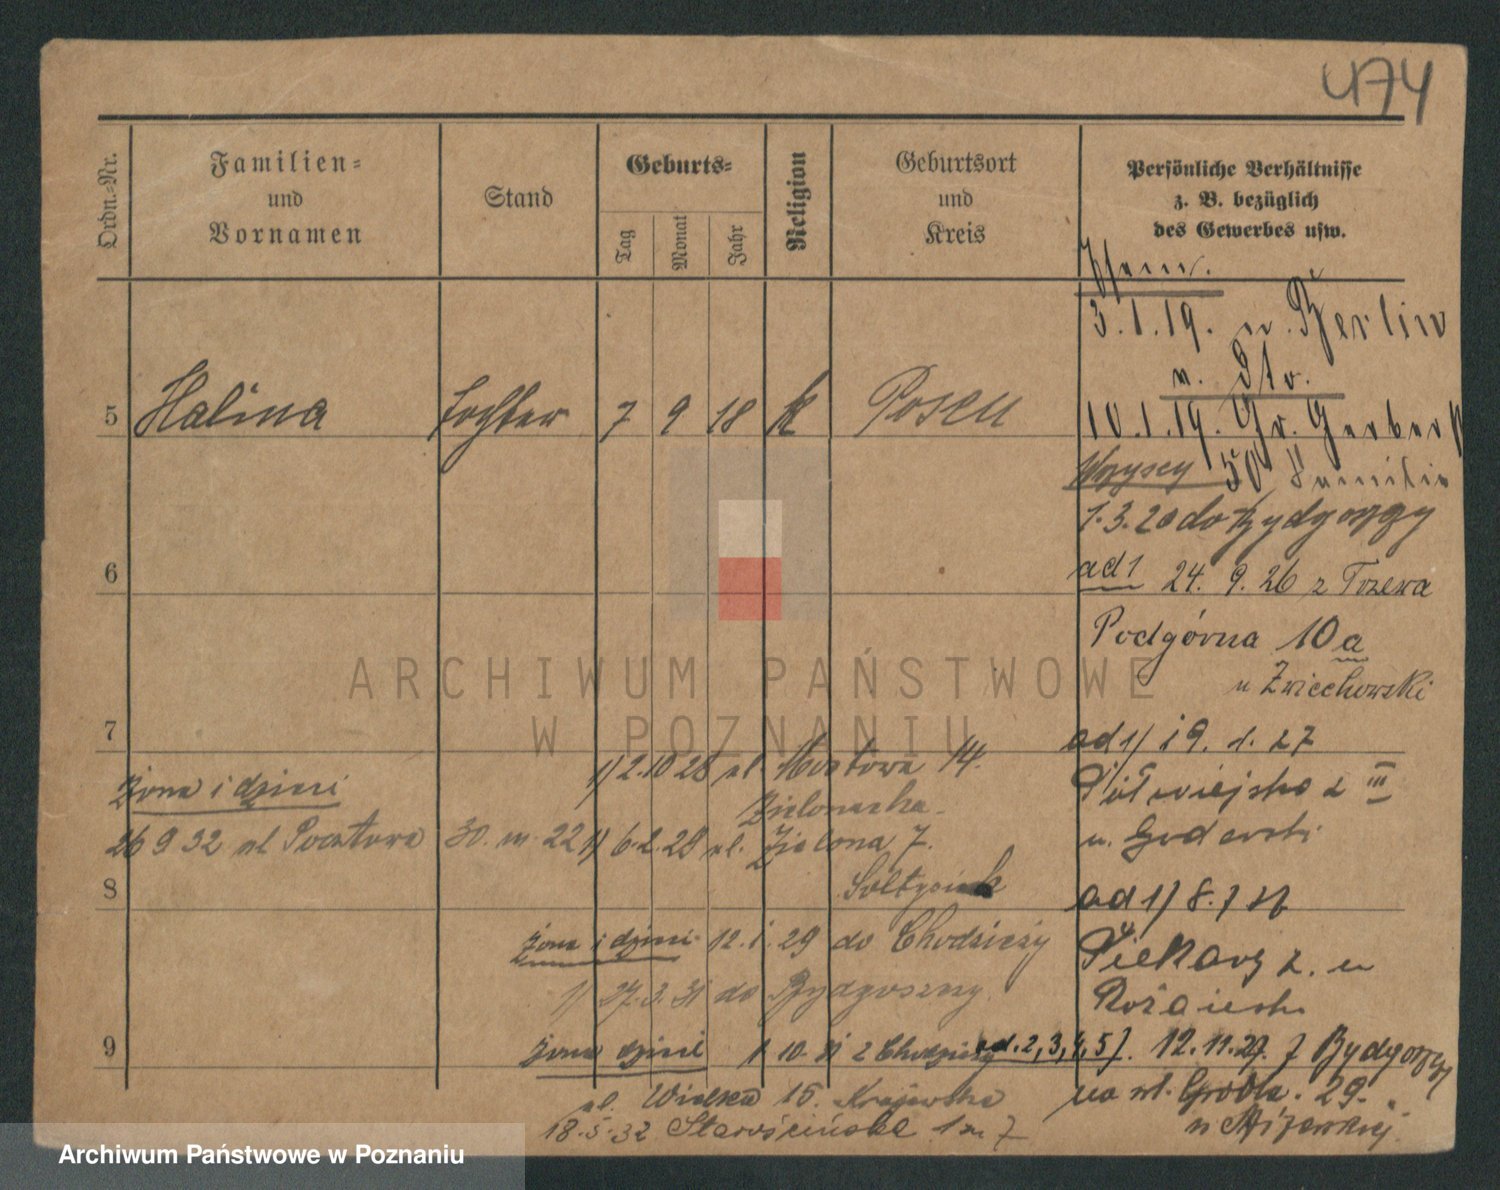 474
Ordn.-Nr.
Familien-
und
Vornamen
Stand
Geburts-
Tag
Monat
Jahr
Religion
Geburtsort
und
Kreis
Persönliche Verhältnisse
z. B. bezüglich
des Gewerbes usw.
3.1.19. n. Berlin
5 Halina Tochter 7 9 18 k Posen
10.1.19. Gr. Gerber
Wszyscy 50 Familie
1.3.20 do Bydgoszczy
6
ad 1 24. 9. 26 z Tczewa
Podgórna 10a
u Zwiechowski
ARCHIWUM PAŃSTWOWE
W POZNANIU
7
ad 1/ 19. 1. 27
Półwiejska 2 III
u.
1) 2.10 28 ul. Mostowa 14.
Zielonacka
żona i dzieci
26 9 32 ul Pocztowa 30. m. 22
1) 6.2.29 ul. Zielona 7.
Sołtysiak
8
ad 1/ 8. 7 27
Piekary 2. u
żona i dzieci 12. 1. 29 do Chodzieży
1) 27. 3. 31 do Bydgoszczy.
9
żona dzieci 1 10. 31 z Chodzieży
ad. 2, 3, 4, 5). 12. 11. 27. z Bydgoszczy
na ul. Grobla. 29.
ul. Wielka 15. Krajewska
18.5.32 Starościńska 1 m 7
Archiwum Państwowe w Poznaniu